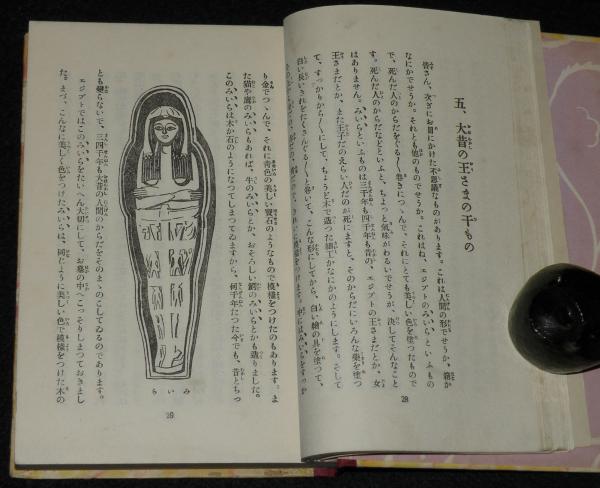 五、大昔の王さまの干もの
皆さん、次ぎにお目にかけた不思議なものがあります。これは人間の形でせうか、箱か
なにかでせうか。それとも他のものでせうか。これはね、エジプトのみいらといふもの
で、死んだ人のからだをぐる〳〵巻きにつゝんで、それにとても美しい色を塗つたもので
す。死んだ人のからだなどといふと、ちよつと気味がわるいでせうが、決してそんなこと
はありません。みいらといふものは三千年も四千年も昔の、エジプトの王さまだとか、女
王さまだとか、また王子だのえらい人だのが死にますと、そのからだにいろんな薬を塗つ
て、すつかりから〳〵にして、ちようど木で造つた細工かなにかのようにします。そして
白い長いきれをたくさんぐる〳〵と巻いて、こんな形にしてから、白い絵の具を塗つて、
28
り金でつゝんで、それに青色の美しい宝石のようなもので模様をつけたのもあります。ま
た猫や鷹のみいらもあれば、牛のみいらとか、おそろしい鰐のみいらとかも造りました。
このみいらは木か石のようになつてしまつてゐますから、何千年たつた今でも、昔とちつ
みいら
とも変らないで、三四千年も大昔の人間のからだをそのまゝのこしてゐるのであります。
エジプトではこのみいらをたいへん大切にして、お墓の中へこつそりしまつておきまし
た。まづ、こんなに美しく色をつけたみいらは、同じように美しい色で模様をつけた木の
29